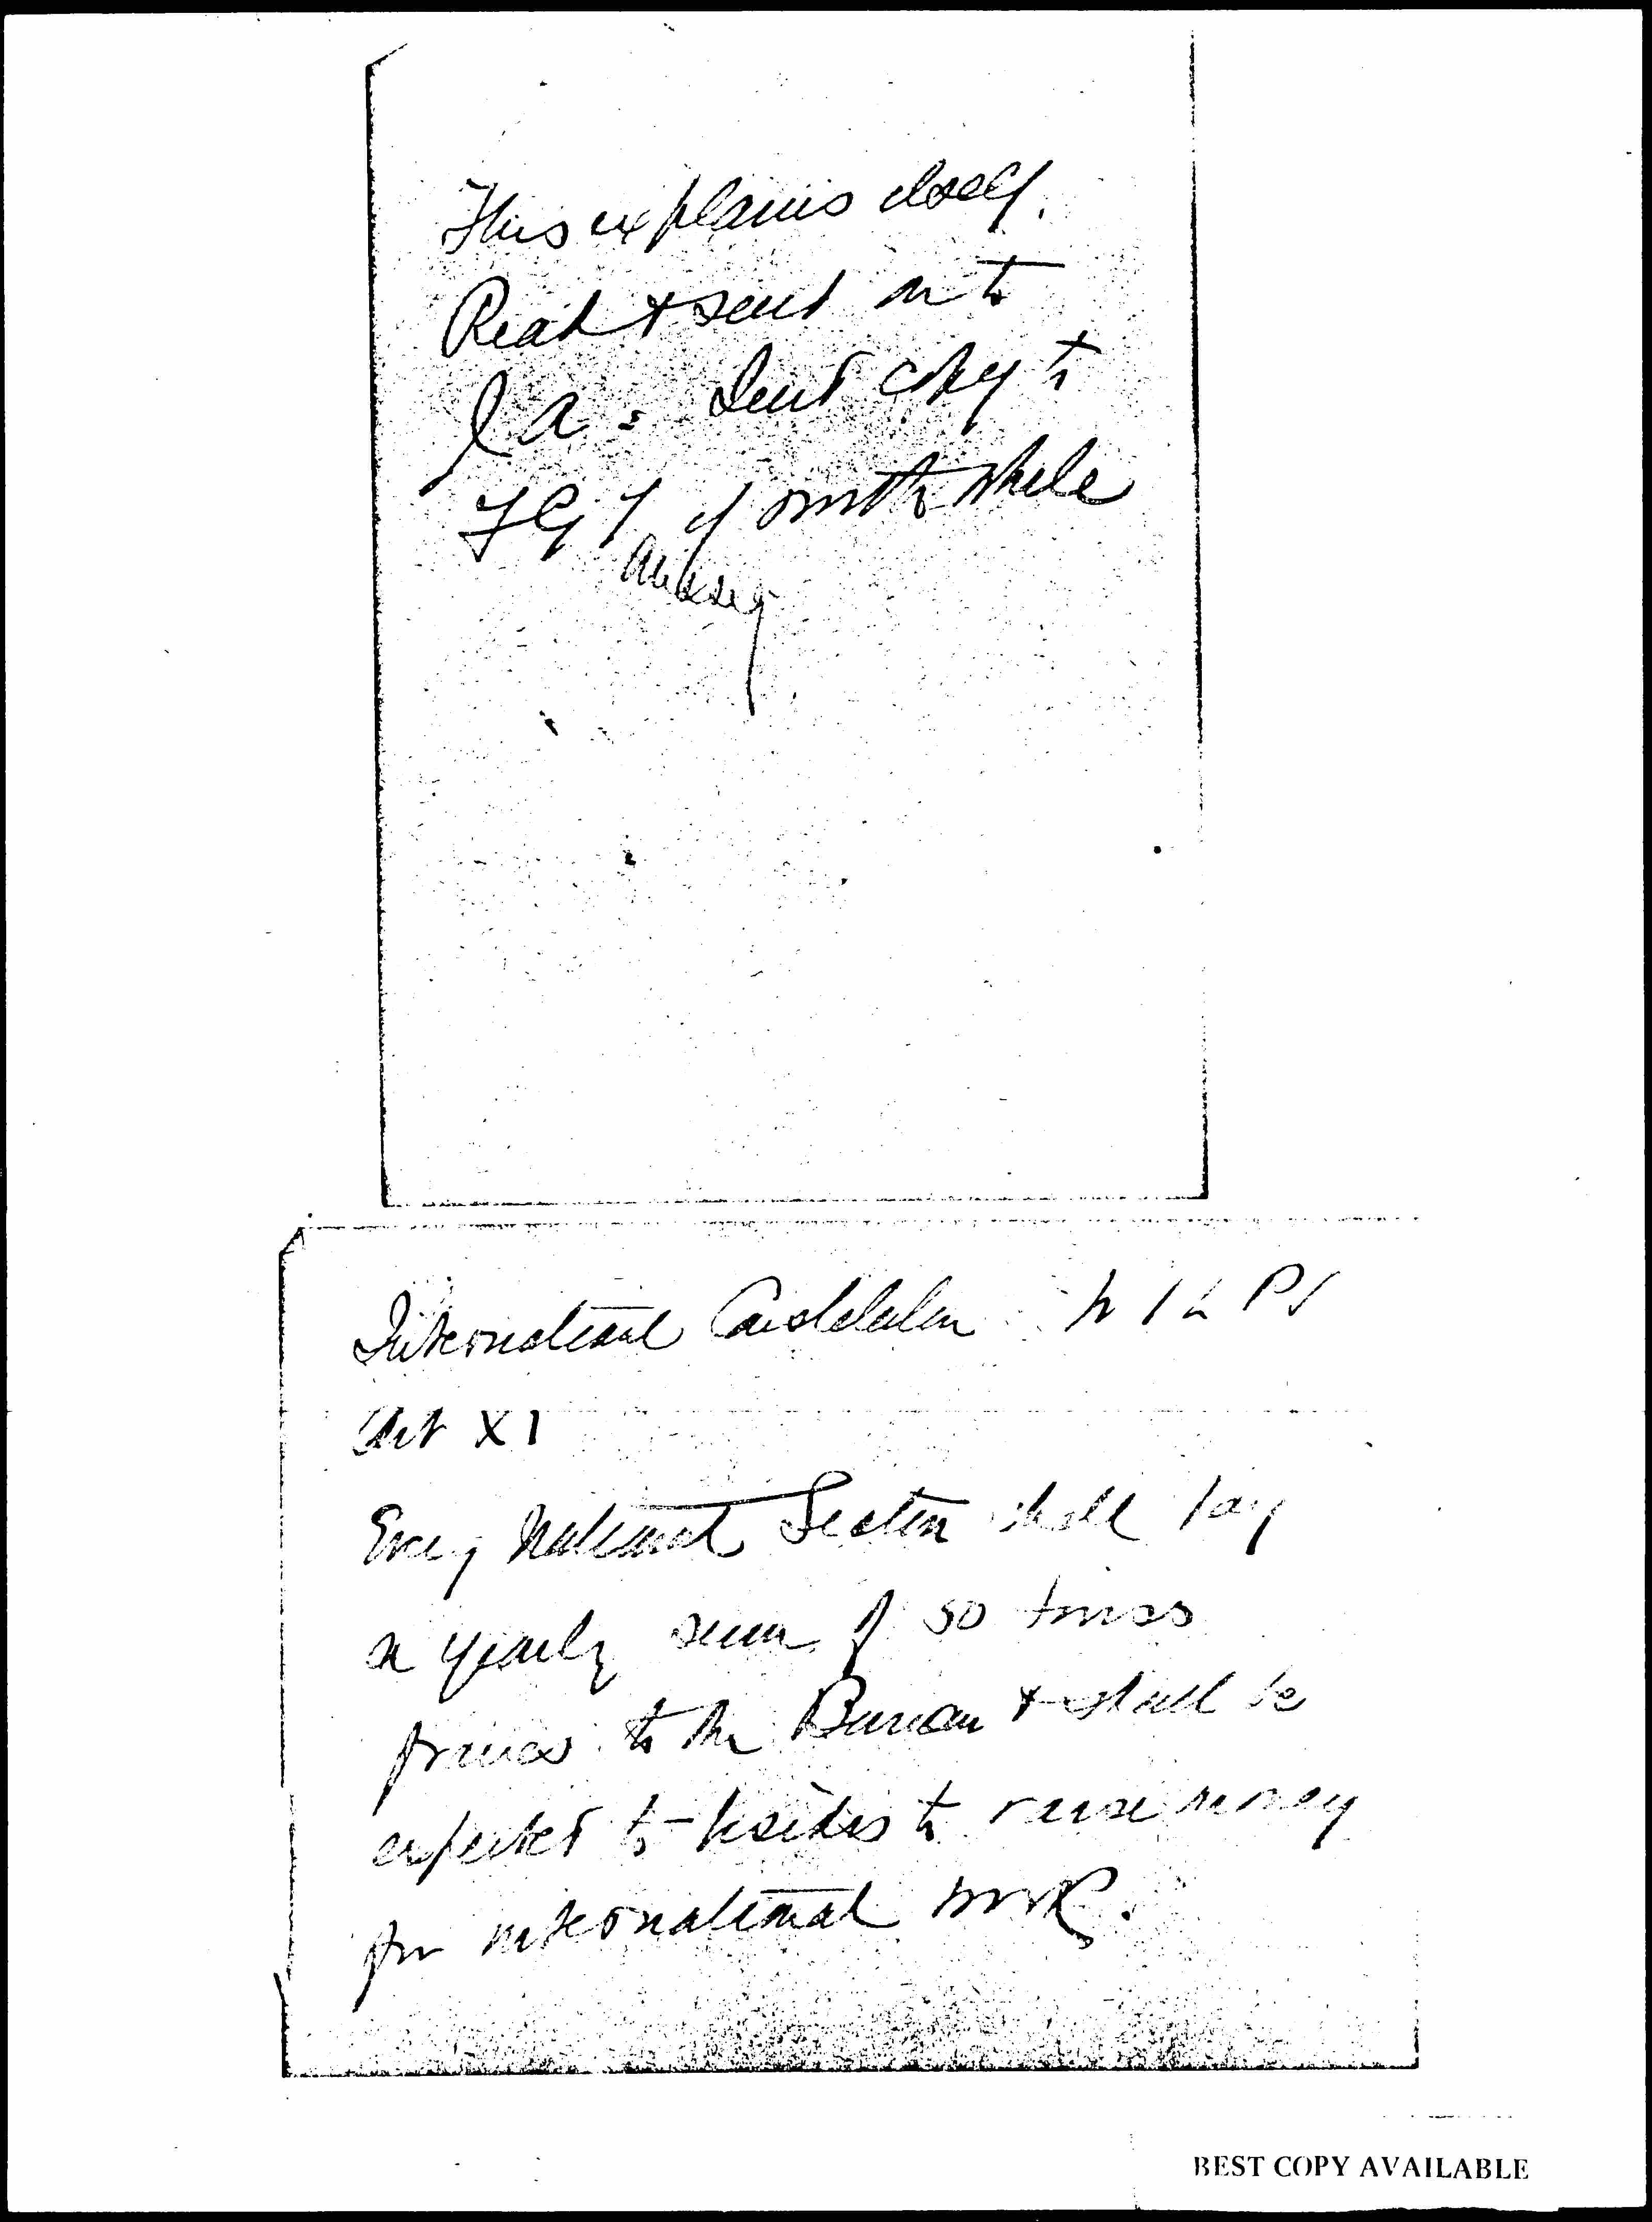 This explains itself.
Read & send on to
J a. Sent copy to
if worth while
International Constitution W I L P F
Art XI
Every National Section shall pay
a yearly sum of 50 times
francs to the Bureau & shall be
expected to - besides to raise money
for international work.
BEST COPY AVAILABLE